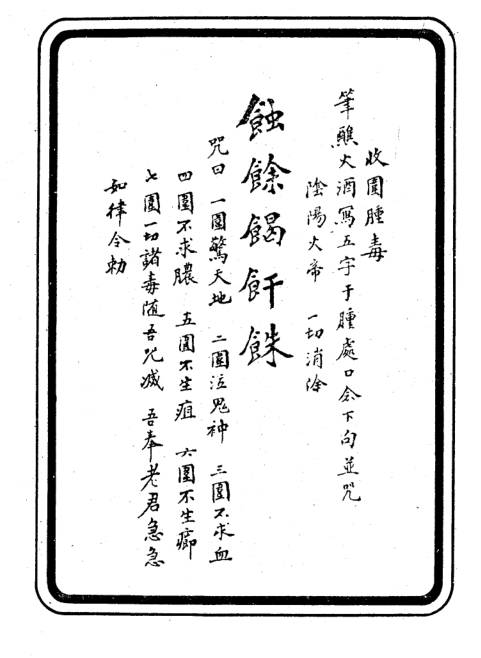 收圍腫毒
筆蘸火酒寫五字于腫處口念下向並咒
陰陽火帝　一切消除
蝕餘餲飦銖
咒曰　一圍驚天地　二圍泣鬼神　三圍不求血
四圍不求膿　五圍不生疽　六圍不生癤
七圍一切諸毒隨吾咒滅　吾奉老君急急
如律令勅